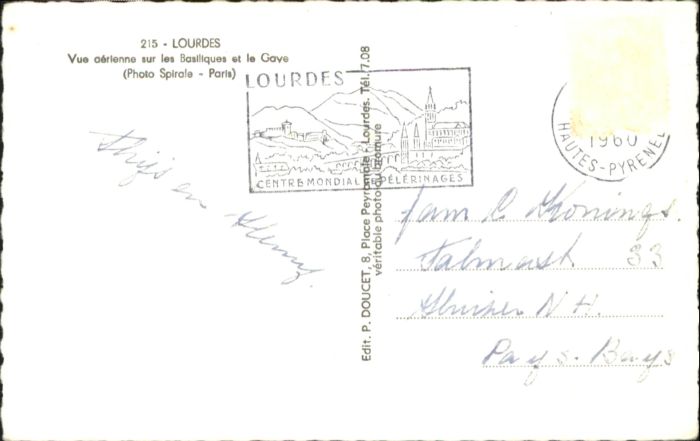 215 - LOURDES
Vue aérienne sur les Basiliques et le Gave
(Photo Spirale - Paris)
LOURDES
CENTRE MONDIAL PÉLERINAGES
1960
HAUTES-PYRENEES
Edit. P. DOUCET, 8, Place Peyramale - Lourdes. Tél. 7.08
véritable photo au bromure
Thijs en
Fam C Konings.
33
N H.
Pays-Bays